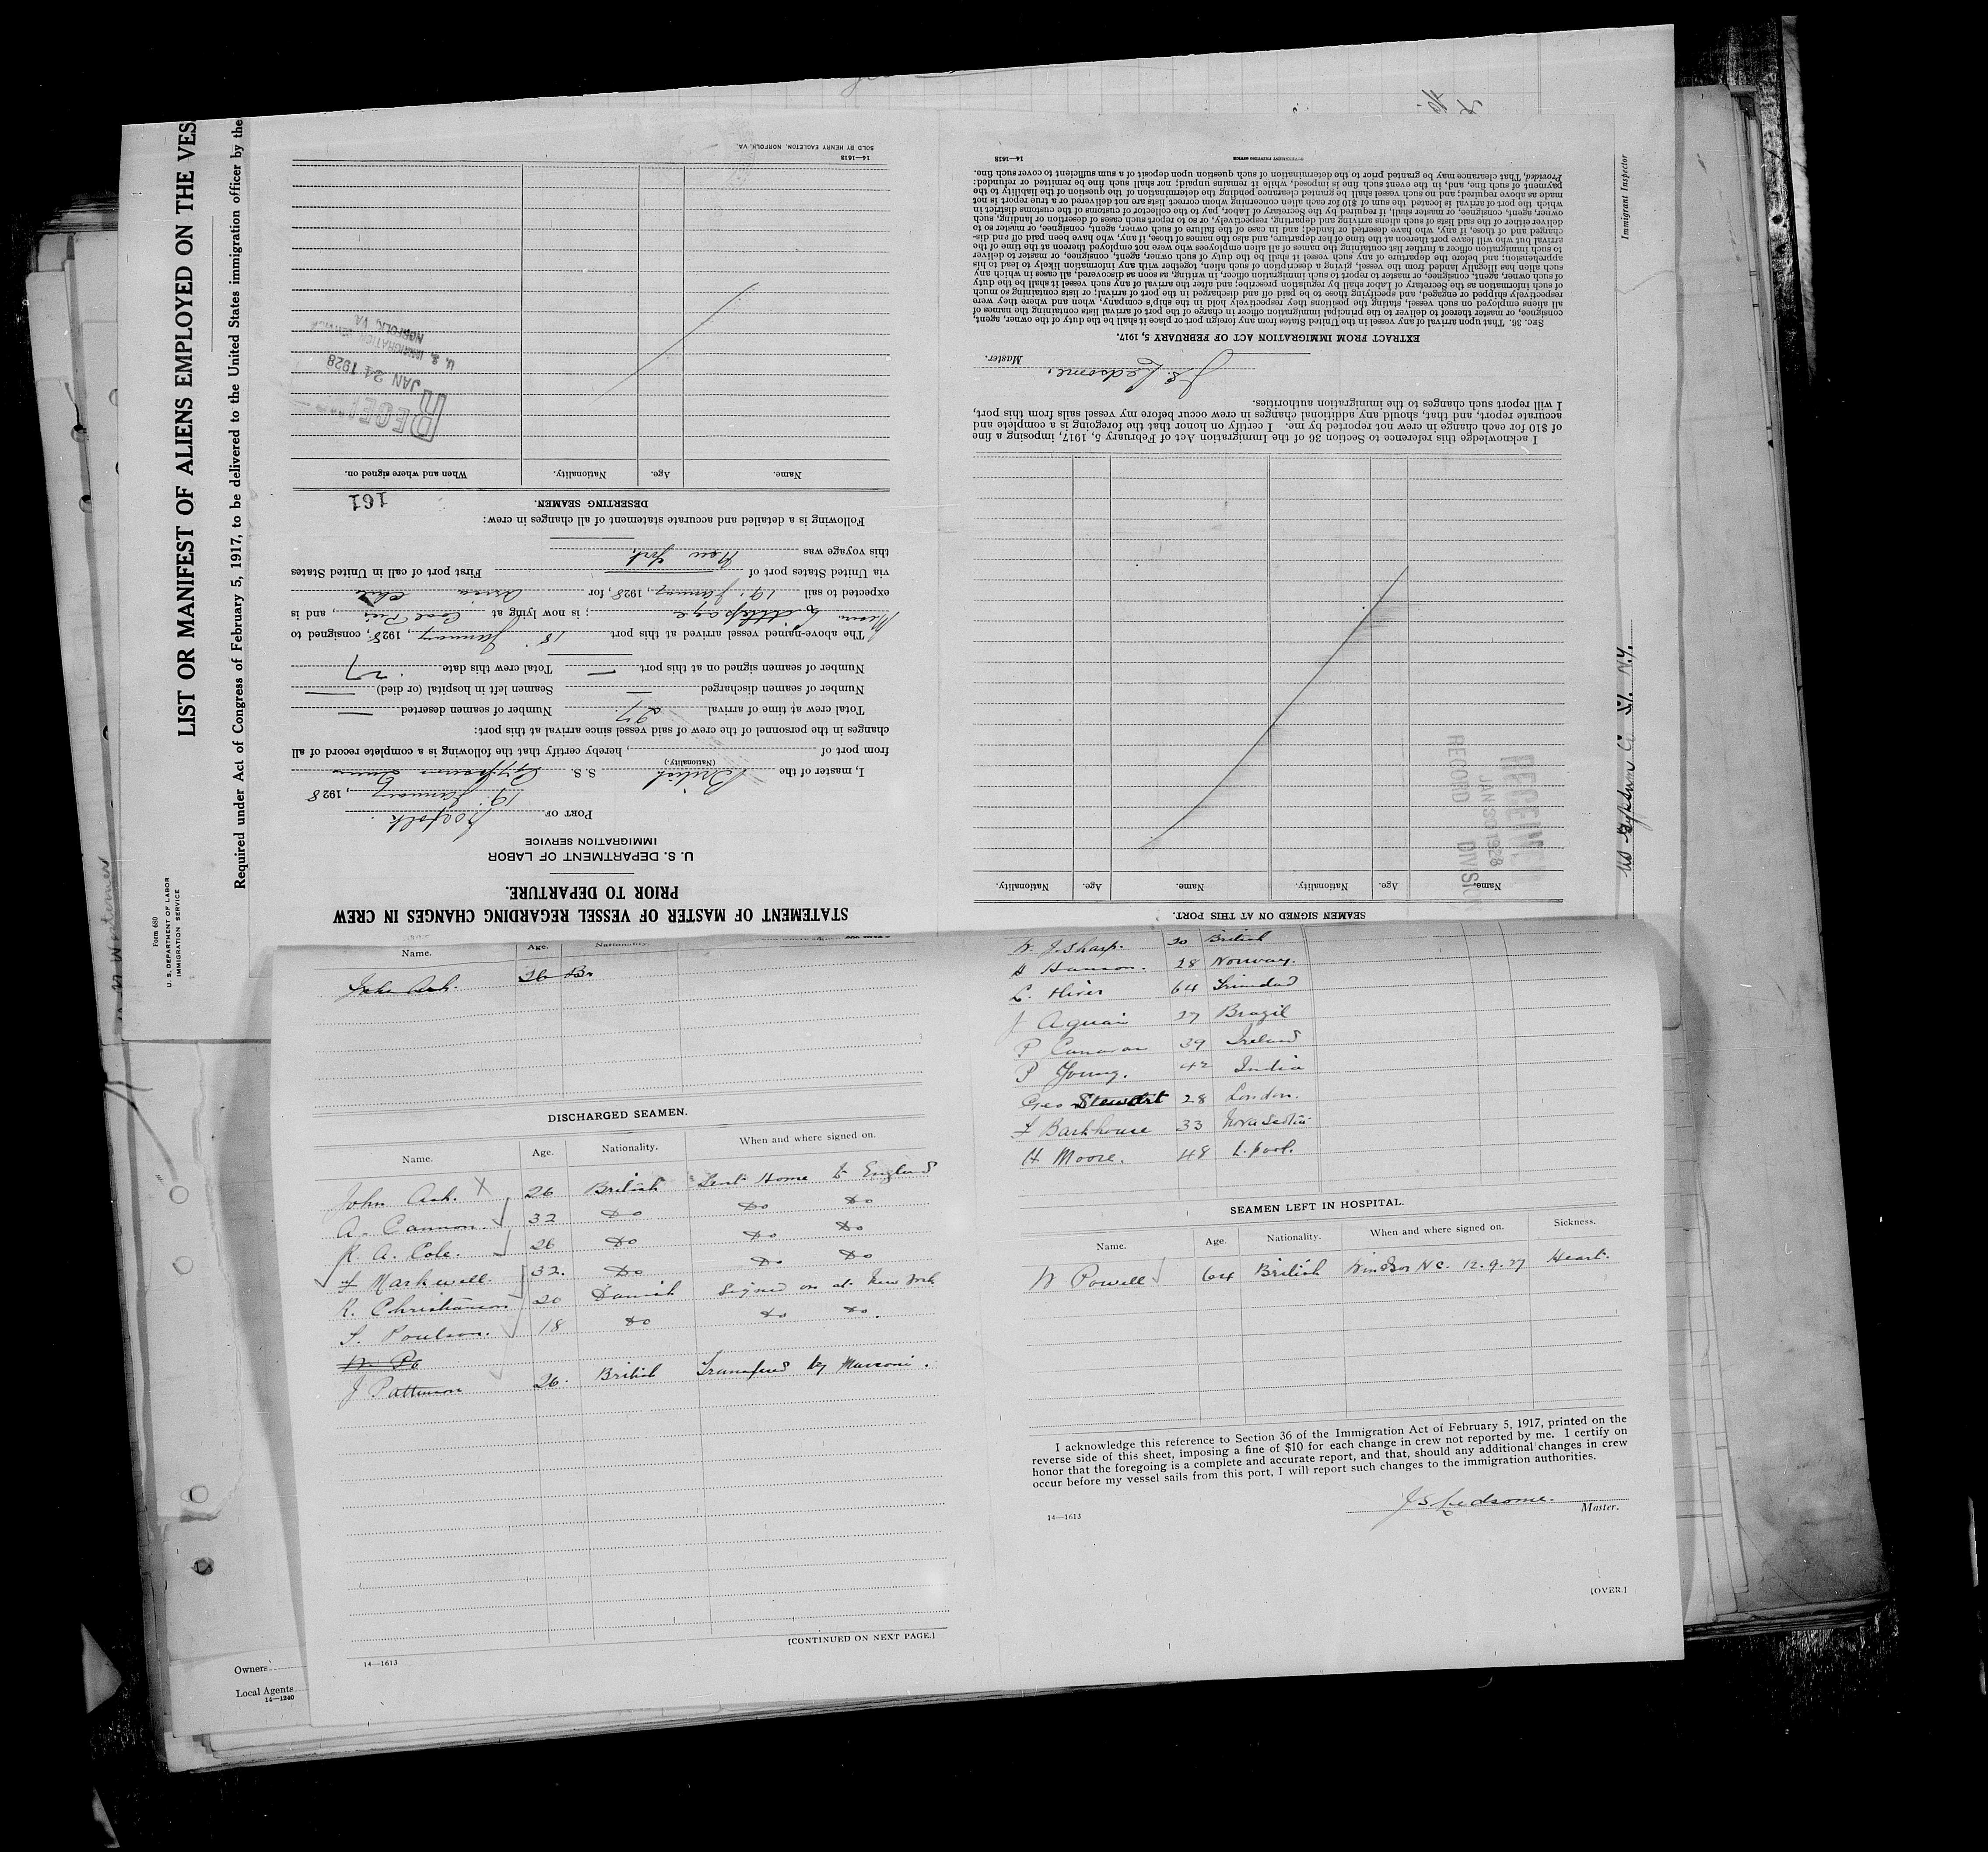 LIST OR MANIFEST OF ALIENS EMPLOYED ON THE VES
Required under Act of Congress of February 5, 1917, to be delivered to the United States immigration officer by the
Form 680
U. S. DEPARTMENT OF LABOR
IMMIGRATION SERVICE
STATEMENT OF MASTER OF VESSEL REGARDING CHANGES IN CREW
PRIOR TO DEPARTURE.
U. S. DEPARTMENT OF LABOR
IMMIGRATION SERVICE
PORT OF Norfolk.
19. January, 1928
I, master of the British S. S. Gypsum Queen
(Nationality.)
from port of , hereby certify that the following is a complete record of all
changes in the personnel of the crew of said vessel since arrival at this port:
Total crew at time of arrival 27. Number of seamen deserted —
Number of seamen discharged — Seamen left in hospital (or died) —
Number of seamen signed on at this port — Total crew this date 27
The above-named vessel arrived at this port 18 January, 1928, consigned to
; is now lying at Coal Pier, and is
expected to sail 19. January, 1928, for Arica Chile
via United States port of First port of call in United States
this voyage was New York
Following is a detailed and accurate statement of all changes in crew:
161
DESERTING SEAMEN.
Name. Age. Nationality. When and where signed on.
RECEI
JAN 21 1928
U. S. IMMIGRATION SERVICE
NORFOLK, VA.
14—1618
SOLD BY HENRY EAGLETON, NORFOLK, VA.
SEAMEN SIGNED ON AT THIS PORT.
Name. Age. Nationality. Name. Age. Nationality.
RECEIVED
JAN 30 1928
RECORD DIVISION
I acknowledge this reference to Section 36 of the Immigration Act of February 5, 1917, imposing a fine
of $10 for each change in crew not reported by me. I certify on honor that the foregoing is a complete and
accurate report, and that, should any additional changes in crew occur before my vessel sails from this port,
I will report such changes to the immigration authorities.
J. S. Ledsome.
Master.
EXTRACT FROM IMMIGRATION ACT OF FEBRUARY 5, 1917.
SEC. 36. That upon arrival of any vessel in the United States from any foreign port or place it shall be the duty of the owner, agent,
consignee, or master thereof to deliver to the principal immigration officer in charge of the port of arrival lists containing the names of
all aliens employed on such vessel, stating the positions they respectively hold in the ship's company, when and where they were
respectively shipped or engaged, and specifying those to be paid off and discharged in the port of arrival; or lists containing so much
of such information as the Secretary of Labor shall by regulation prescribe; and after the arrival of any such vessel it shall be the duty
of such owner, agent, consignee, or master to report to such immigration officer, in writing, as soon as discovered, all cases in which any
such alien has illegally landed from the vessel, giving a description of such alien, together with any information likely to lead to his
apprehension; and before the departure of any such vessel it shall be the duty of such owner, agent, consignee, or master to deliver
to such immigration officer a further list containing the names of all alien employees who were not employed thereon at the time of the
arrival but who will leave port thereon at the time of her departure, and also the names of those, if any, who have been paid off and dis-
charged and of those, if any, who have deserted or landed; and in case of the failure of such owner, agent, consignee, or master so to
deliver either of the said lists of such aliens arriving and departing, respectively, or so to report such cases of desertion or landing, such
owner, agent, consignee, or master, shall, if required by the Secretary of Labor, pay to the collector of customs of the customs district in
which the port of arrival is located the sum of $10 for each alien concerning whom correct lists are not delivered or a true report is not
made as above required; and no such vessel shall be granted clearance pending the determination of the question of the liability to the
payment of such fine, and, in the event such fine is imposed, while it remains unpaid; nor shall such fine be remitted or refunded:
Provided, That clearance may be granted prior to the determination of such question upon deposit of a sum sufficient to cover such fine.
GOVERNMENT PRINTING OFFICE 14—1618
Immigrant Inspector
Name. Age. Nationality.
John Ash. 26 Br
DISCHARGED SEAMEN.
Name. Age. Nationality. When and where signed on.
John Ash. X 26 British Sent Home to England
A. Cannon. 32 Do Do Do
R. A. Cole. 26 Do Do Do
F Markwell. 32. Do Do Do
R. Christianson 20 Danish Signed on at New York
S. Poulson. 18 Do Do Do.
W. Po
J Patterson 26. British Transfered by Marconi.
[CONTINUED ON NEXT PAGE.]
14—1613
W. J. Sharp. 30 British
H Hanson. 28 Norway.
C. Hires 64 Trinidad
J Aquai 27 Brazil
P Canavan 39 Ireland
P Young. 42 India
Geo Stewart 28 London.
F Barkhouse 33 Nova Scotia
H Moore. 48 L. pool.
SEAMEN LEFT IN HOSPITAL.
Name. Age. Nationality. When and where signed on. Sickness.
W Powell 64 British Windsor N.S. 12.9.27 Heart.
I acknowledge this reference to Section 36 of the Immigration Act of February 5, 1917, printed on the
reverse side of this sheet, imposing a fine of $10 for each change in crew not reported by me. I certify on
honor that the foregoing is a complete and accurate report, and that, should any additional changes in crew
occur before my vessel sails from this port, I will report such changes to the immigration authorities.
J S Ledsome.
Master.
14—1613
[OVER.]
Owners
Local Agents
14—1240